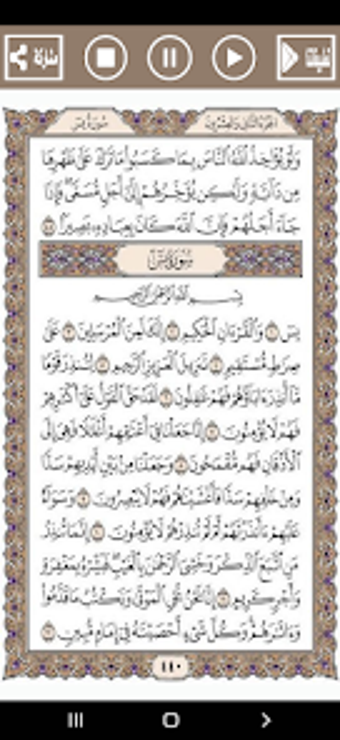 مشاركة
تطبيقاتنا
سُورَةُ يسٓ
الجزء الثاني والعشرون
وَلَوْ يُؤَاخِذُ ٱللَّهُ ٱلنَّاسَ بِمَا كَسَبُوا۟ مَا تَرَكَ عَلَىٰ ظَهْرِهَا
مِن دَآبَّةٍ وَلَٰكِن يُؤَخِّرُهُمْ إِلَىٰٓ أَجَلٍ مُّسَمًّى ۖ فَإِذَا
جَآءَ أَجَلُهُمْ فَإِنَّ ٱللَّهَ كَانَ بِعِبَادِهِۦ بَصِيرًۢا ٤٥
سُورَةُ يسٓ
بِسْمِ ٱللَّهِ ٱلرَّحْمَٰنِ ٱلرَّحِيمِ
يسٓ ١ وَٱلْقُرْءَانِ ٱلْحَكِيمِ ٢ إِنَّكَ لَمِنَ ٱلْمُرْسَلِينَ ٣ عَلَىٰ
صِرَٰطٍ مُّسْتَقِيمٍ ٤ تَنزِيلَ ٱلْعَزِيزِ ٱلرَّحِيمِ ٥ لِتُنذِرَ قَوْمًا
مَّآ أُنذِرَ ءَابَآؤُهُمْ فَهُمْ غَٰفِلُونَ ٦ لَقَدْ حَقَّ ٱلْقَوْلُ عَلَىٰٓ أَكْثَرِهِمْ
فَهُمْ لَا يُؤْمِنُونَ ٧ إِنَّا جَعَلْنَا فِىٓ أَعْنَٰقِهِمْ أَغْلَٰلًا فَهِىَ إِلَى
ٱلْأَذْقَانِ فَهُم مُّقْمَحُونَ ٨ وَجَعَلْنَا مِنۢ بَيْنِ أَيْدِيهِمْ سَدًّا
وَمِنْ خَلْفِهِمْ سَدًّا فَأَغْشَيْنَٰهُمْ فَهُمْ لَا يُبْصِرُونَ ٩ وَسَوَآءٌ
عَلَيْهِمْ ءَأَنذَرْتَهُمْ أَمْ لَمْ تُنذِرْهُمْ لَا يُؤْمِنُونَ ١٠ إِنَّمَا تُنذِرُ
مَنِ ٱتَّبَعَ ٱلذِّكْرَ وَخَشِىَ ٱلرَّحْمَٰنَ بِٱلْغَيْبِ ۖ فَبَشِّرْهُ بِمَغْفِرَةٍ
وَأَجْرٍ كَرِيمٍ ١١ إِنَّا نَحْنُ نُحْىِ ٱلْمَوْتَىٰ وَنَكْتُبُ مَا قَدَّمُوا۟
وَءَاثَٰرَهُمْ ۚ وَكُلَّ شَىْءٍ أَحْصَيْنَٰهُ فِىٓ إِمَامٍ مُّبِينٍ ١٢
٤٤٠